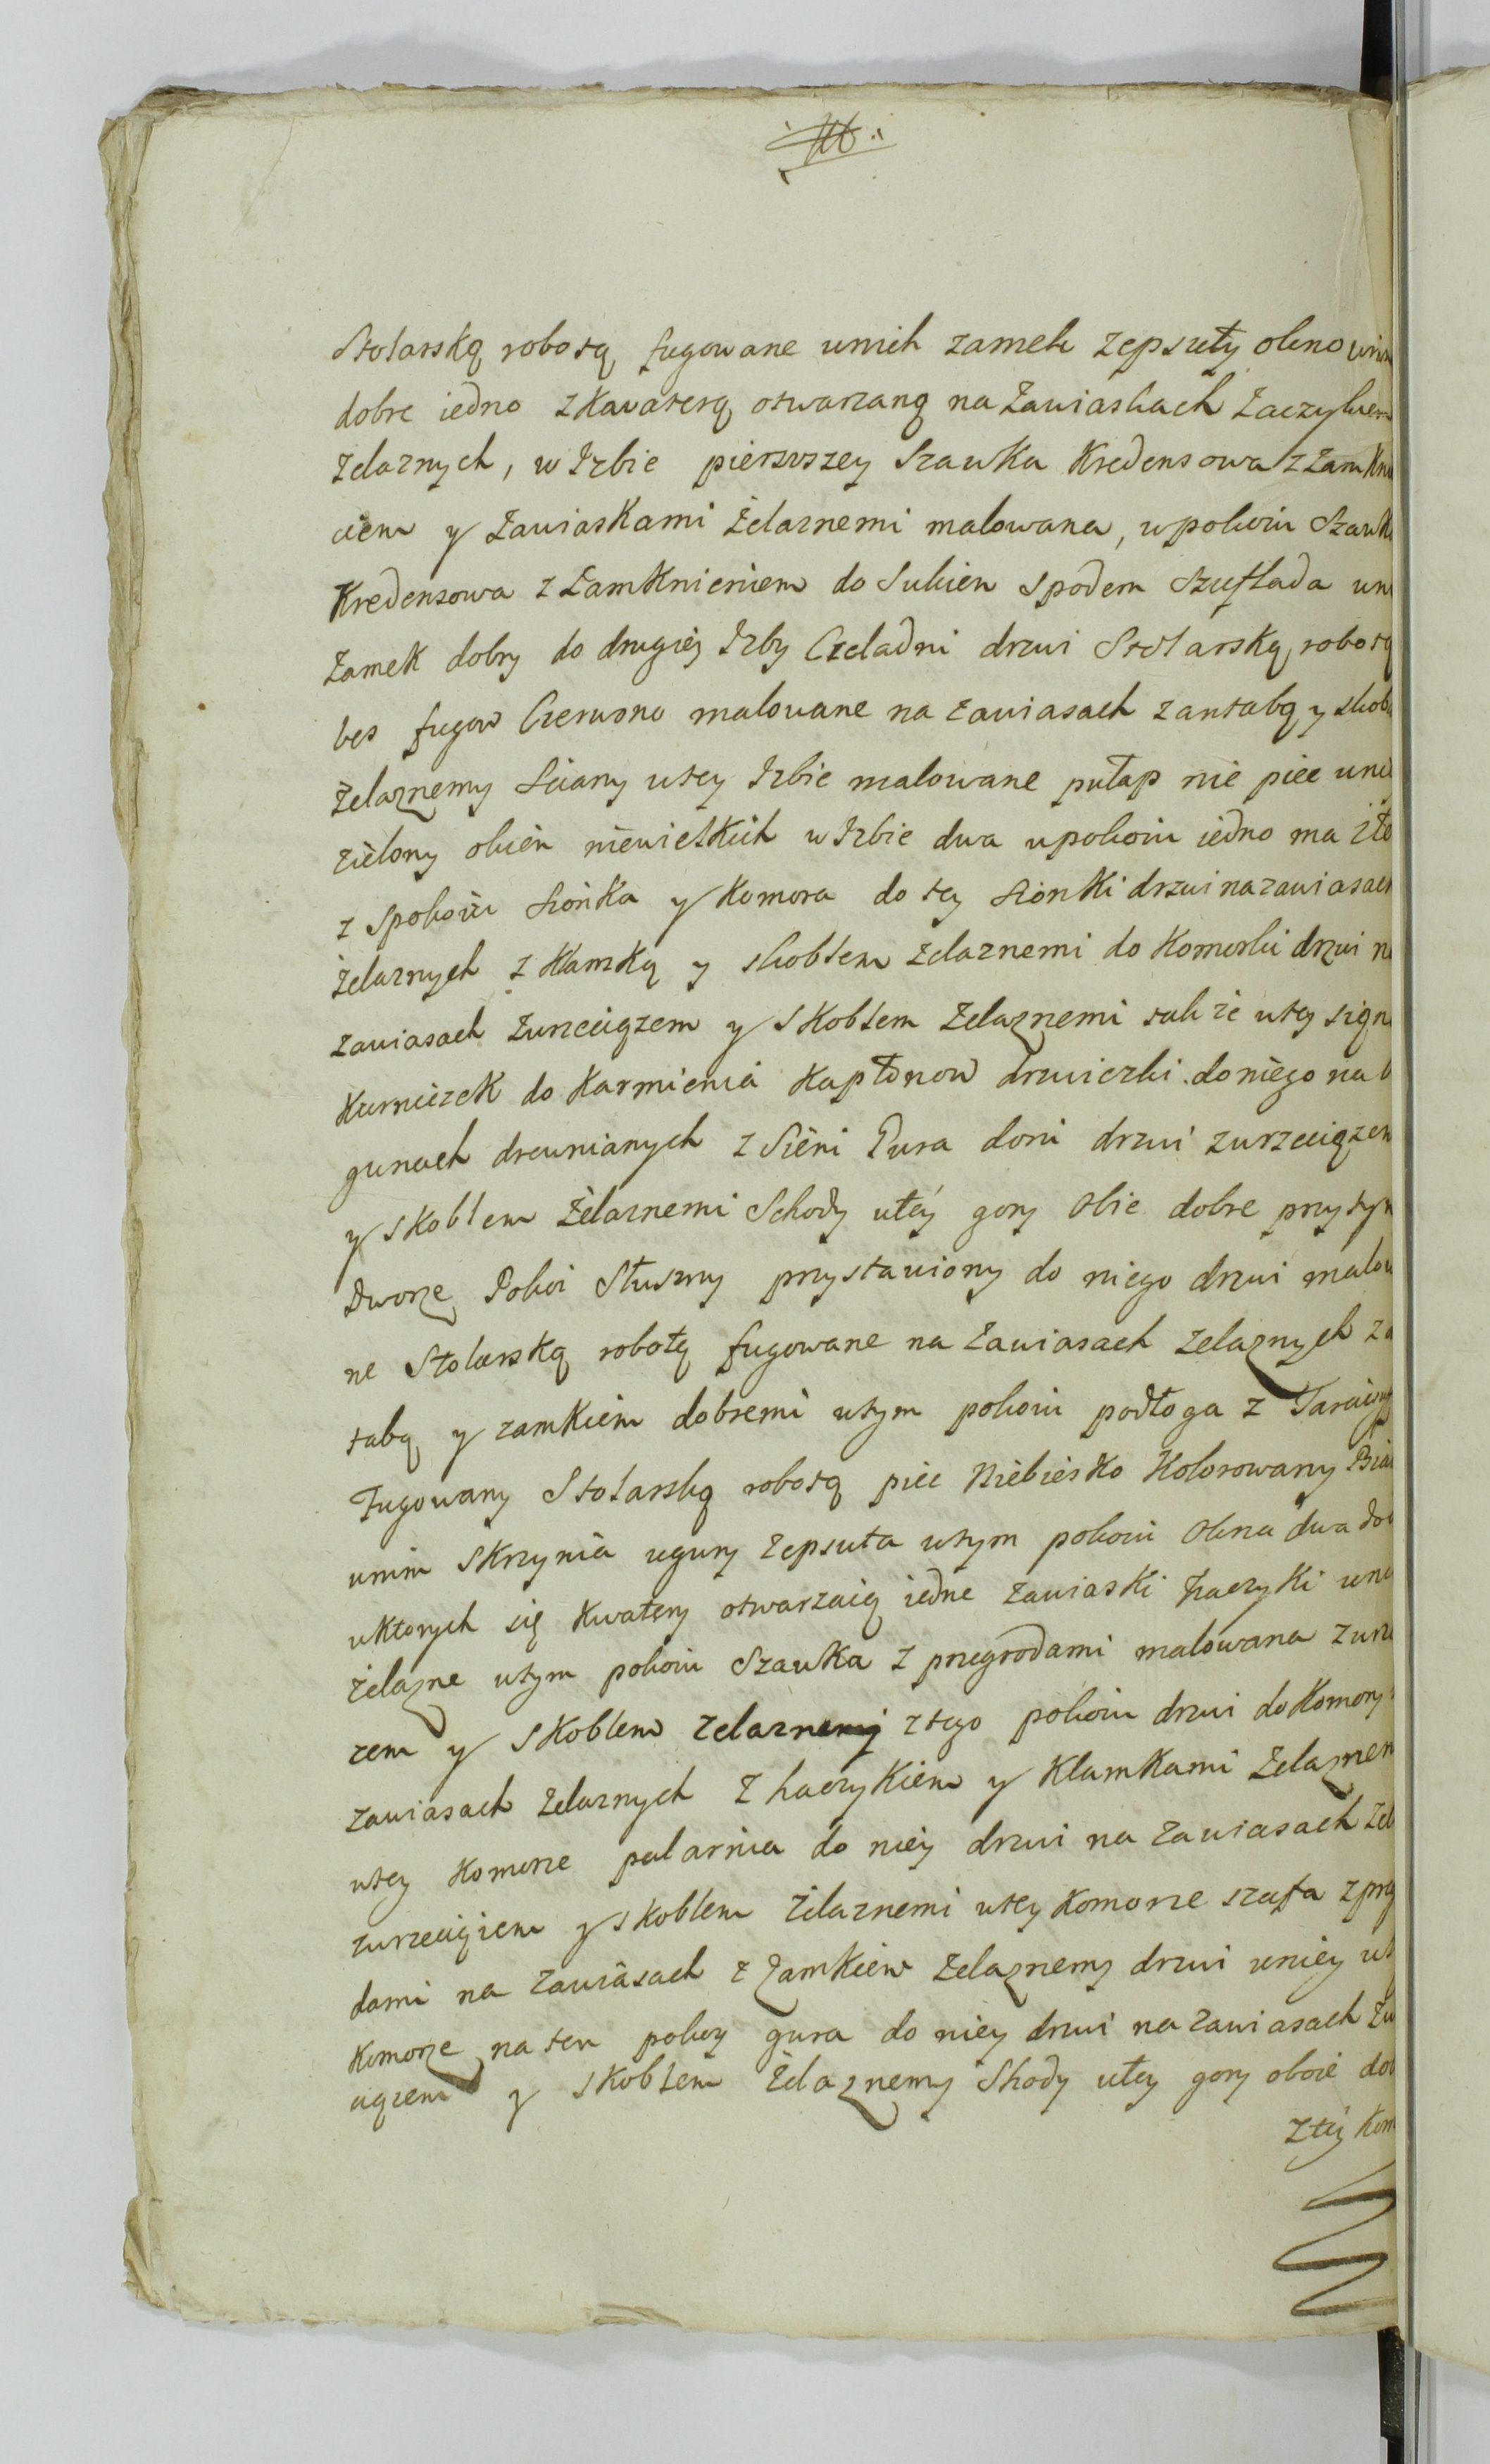 Stolarską robotą fugowane unich zamek zepsuty okno
dobre iedno zkwaterą otwarzaną na Zawiaskach
żelaznych, w Izbie pierwszey Szawka Kredensowa z Zamknie
ciem y Zawiaskami Żelaznemi malowana, wpokoiu Szawk
Kredensowa z Zamknieniem do Sukien Spodem Szuflada
Zamek dobry do drugiey Izby Czeladni drzwi Stolarską robotą
bes fugow Czerwono malowane na zawiasach zantabą y skob
żelaznemy Sciany wtey Izbie malowane pułap nie piec
zielony okien niewielkich w Izbie dwa wpokoiu iedno ma
z Spokoiu Sionka y Komora do tey Sionki drzwi na zawiasach
żelaznych z Klamką y skoblem żelaznemi do Komorki drzwi n
zawiasach Zwrzeciązem y Skoblem Żelaznemi także wtey
Kurniczek do Karmienia Kapłonow drzwiczki do niego na b
gunach drewnianych z Sieni Gura doni drzwi zwrzeciązem
y Skoblem Żelaznemi Schody utey gory Obie dobre przytym
Dworze Pokoi Słuszny przystawiony do niego drzwi malow
ne Stolarską robotą fugowane na Zawiasach żelaznych za
tabą y zamkiem dobremi wtym pokoiu podłoga z Tarcic
Fugowany Stolarską robotą piec Niebiesko Kolorowany
wnim Skrzynia ugury Zepsuta wtym pokoiu Okna dwa
wktorych się Kwatery otwarzaią iedne Zawiaski haczyki
żelazne wtym pokoiu Szawka z przegrodami malowana
zem y Skoblem żelaznemy ztego pokoiu drzwi do Komory
zawiasach żelaznych z haczykiem y Klamkami Żelaznem
wtey Komorze palarnia do niey drzwi na zawiasach żel
zwrzeciązem y skoblem żelaznemi wtey Komorze szafa zprz
dami na Zawiasach z Zamkiem żelaznemy drzwi wniey
Komorze na ten pokoy gura do niey drzwi na zawiasach Zw
ciązem y Skoblem Żelaznemy Shody utey gory oboie dob
Ztey Kom